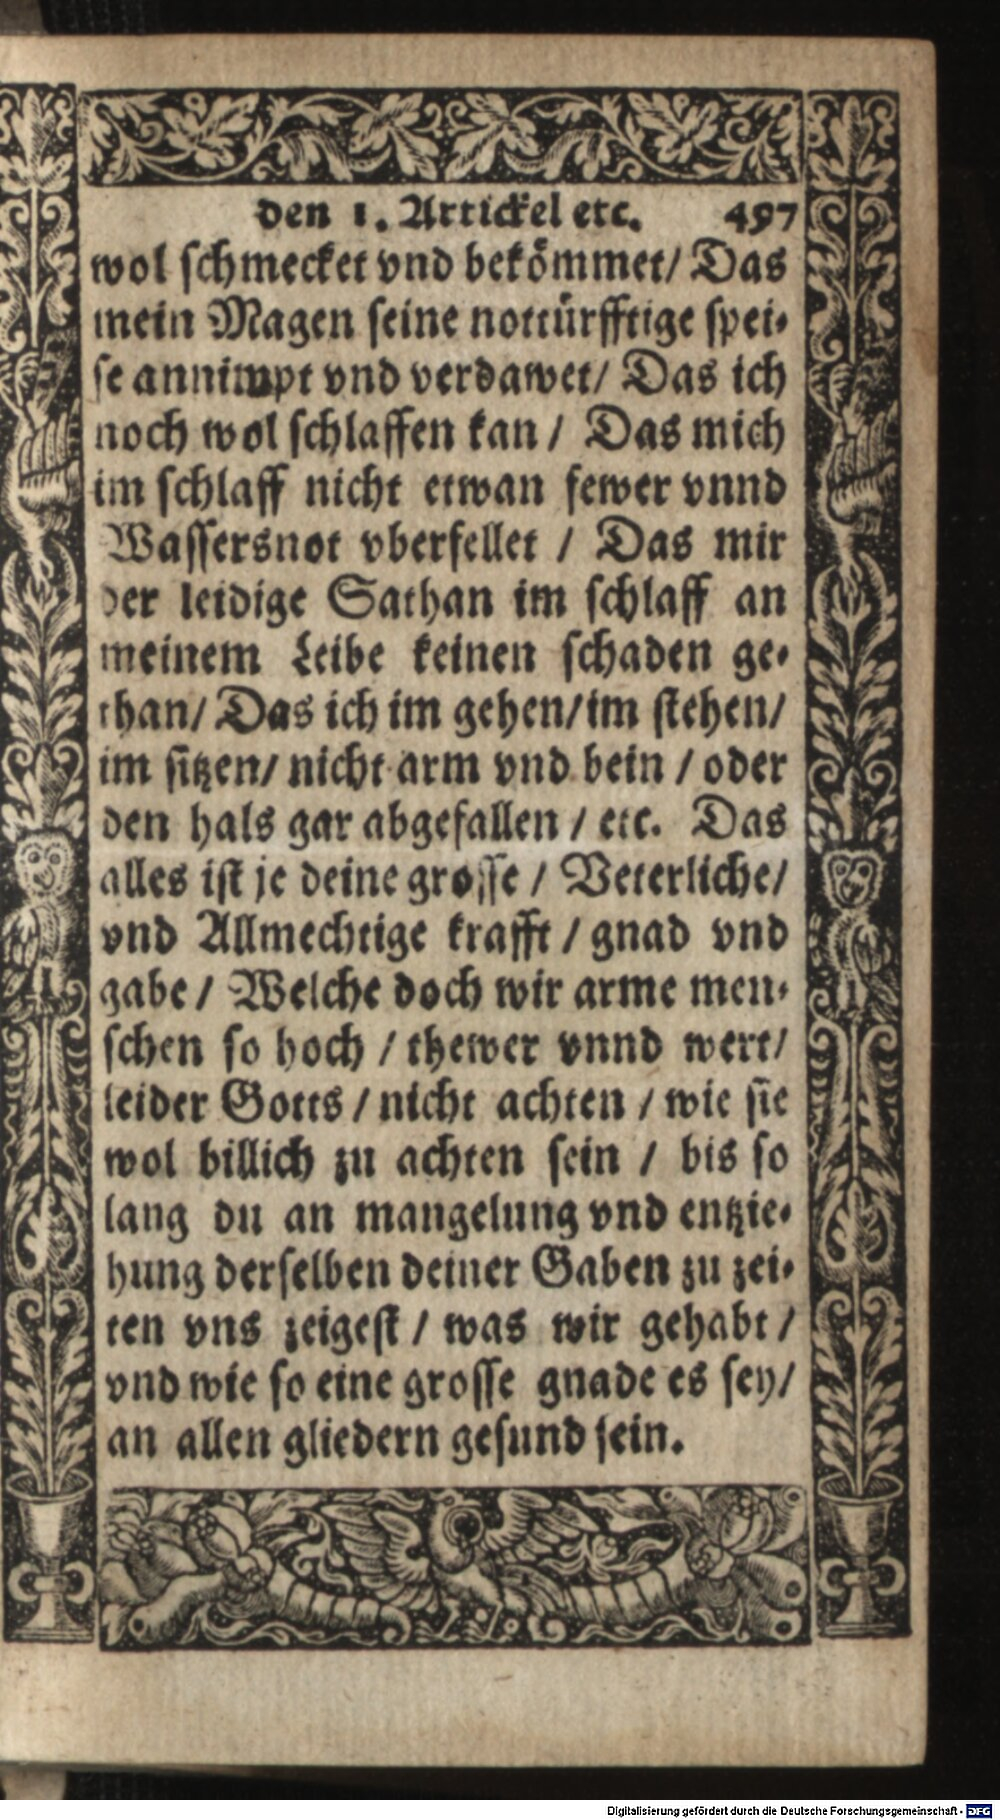 den 1. Artickel etc. 497
wol schmecket vnd bekömmet/ Das
mein Magen seine nottürfftige spei-
se annimpt vnd verdawet/ Das ich
noch wol schlaffen kan / Das mich
im schlaff nicht etwan fewer vnnd
Wassersnot vberfellet / Das mir
der leidige Sathan im schlaff an
meinem Leibe keinen schaden ge-
than/ Das ich im gehen/im stehen/
im sitzen/ nicht arm vnd bein / oder
den hals gar abgefallen / etc. Das
alles ist je deine grosse / Veterliche/
vnd Allmechtige krafft / gnad vnd
gabe / Welche doch wir arme men-
schen so hoch / thewer vnnd wert/
leider Gotts / nicht achten / wie sie
wol billich zu achten sein / bis so
lang du an mangelung vnd entzie-
hung derselben deiner Gaben zu zei-
ten vns zeigest / was wir gehabt /
vnd wie so eine grosse gnade es sey/
an allen gliedern gesund sein.
Digitalisierung gefördert durch die Deutsche Forschungsgemeinschaft - DFG